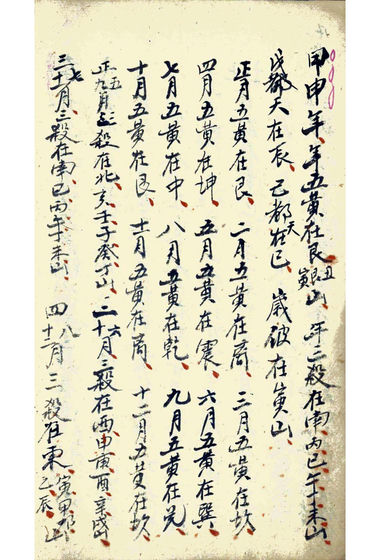 甲申年年五黃在艮丑艮寅山 年三殺在南丙巳午未山
戊都天在辰 己都天在巳 歲破在寅山
正月五黃在艮 二月五黃在离 三月五黃在坎
四月五黃在坤 五月五黃在震 六月五黃在巽
七月五黃在中 八月五黃在乾 九月五黃在兌
十月五黃在艮 十一月五黃在离 十二月五黃在坎
正五九月三殺在北亥壬子癸丁山 二六十月三殺在西申庚酉辛戌
三七十一月三殺在南巳丙午未山 四八十二月三殺在東寅甲卯乙辰山